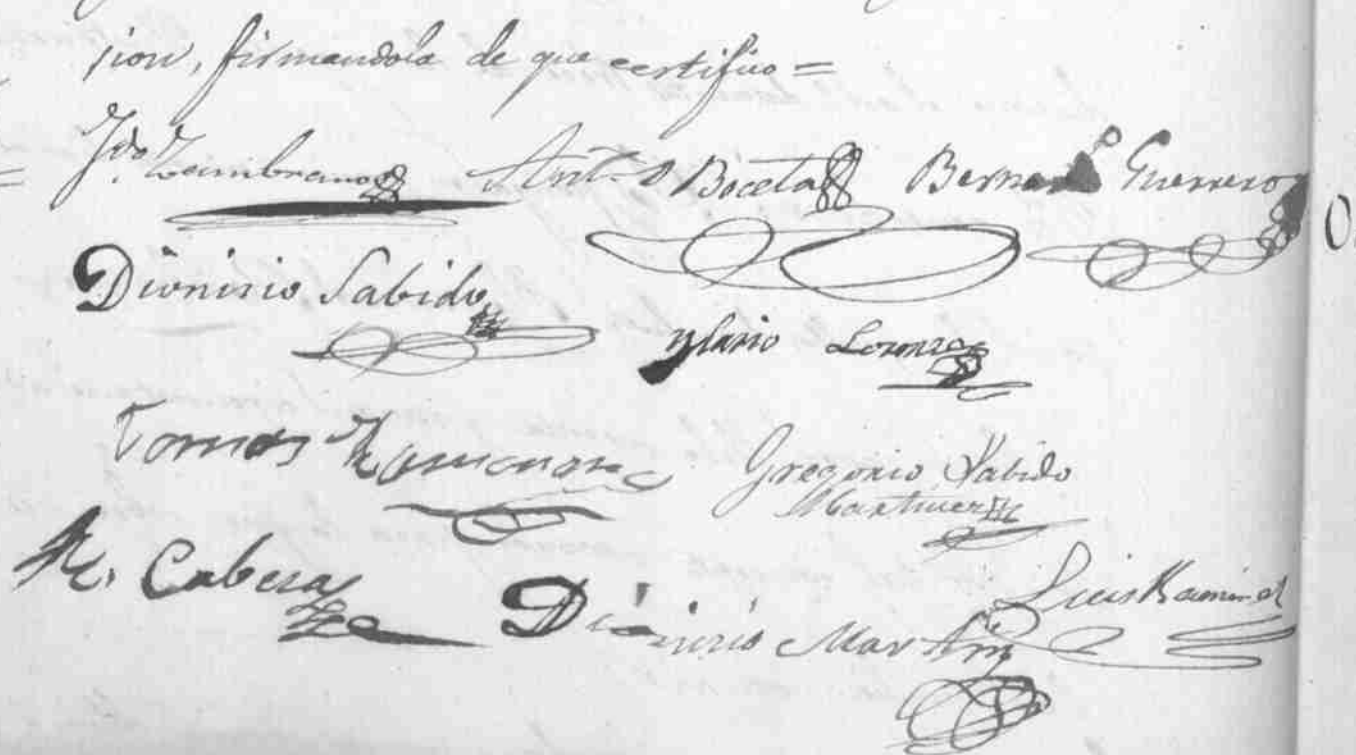 sion, firmandola de que certifico =
Zambrano Antº Boceta Bernardo Guerrero
Dionisio Sabido
Ylario Lorenzo
Tomas
Gregorio Sabido
Martinez
R. Cabeza
Luis Ramirez
Dionisio Martin